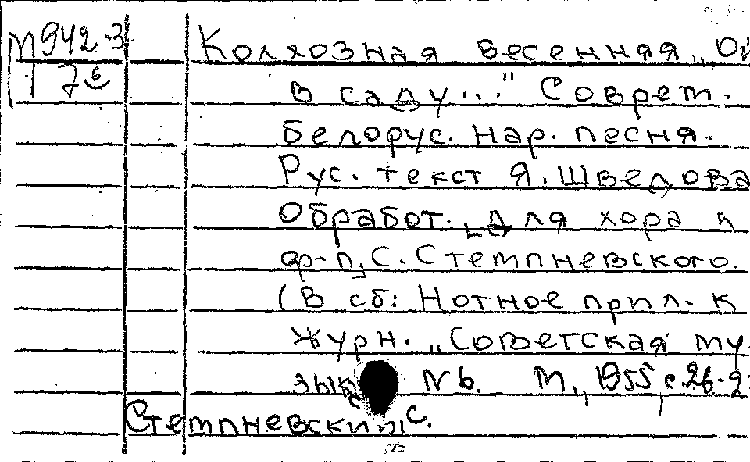 М942-3 Колхозная весенняя „Ой
7в в саду..." Соврем.
Белорус. нар. песня.
Рус. текст Я. Шведова
Обработ. для хора и
ф-п. С. Стемпневского.
(В сб: Нотное прил. к
журн. „Советская му-
зыка №6. М., 1955, с. 26-2
Стемпневский С.